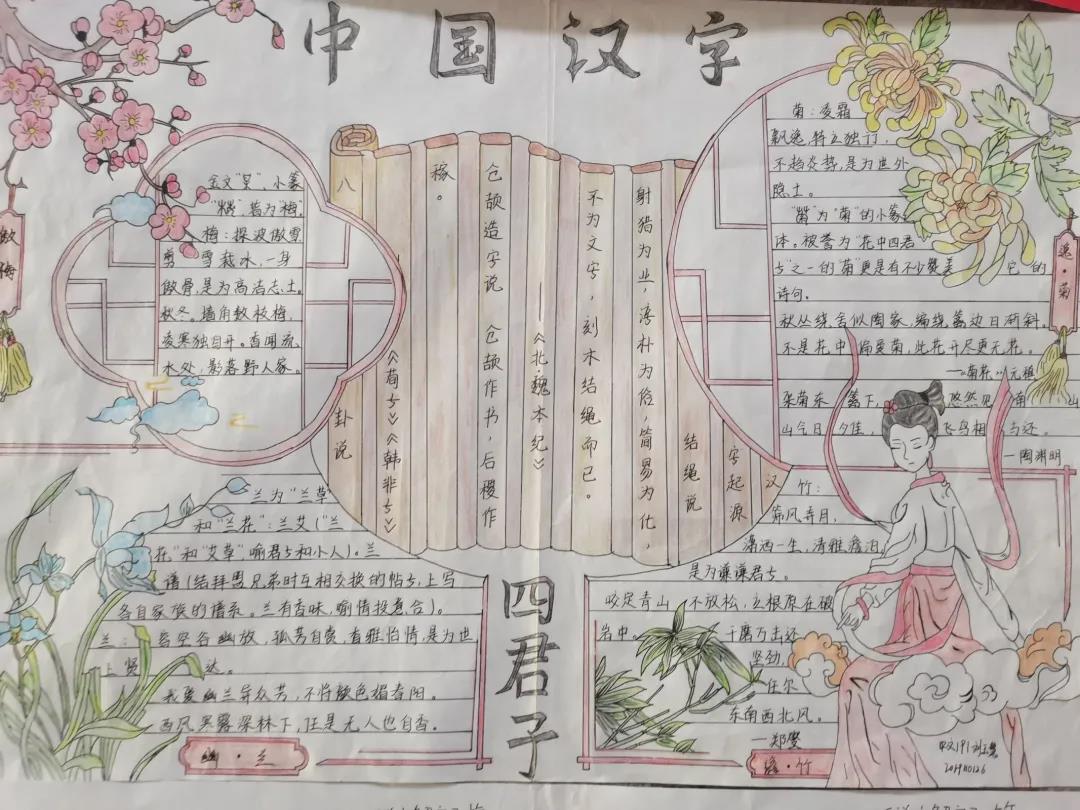 中国汉字
傲梅
金文"呆"、小篆
"楳",皆为"梅"。
梅:探波傲雪
剪雪裁水,一身
傲骨,是为高洁志士。
秋冬。墙角数枝梅,
凌寒独自开。香闻流
水处,影落野人家。
汉
字起源
结绳说
射猎为业,淳朴为俗,简易为化,
不为文字,刻木结绳而已。
——《北·魏本纪》
仓颉造字说 仓颉作书,后稷作
稼。
《荀子》《韩非子》
八卦说
菊:凌霜
飘逸,特立独行,
不趋炎势,是为世外
隐士。
"蘜"为"菊"的小篆
体。被誉为"花中四君
子"之一的"菊"更是有不少赞美它的
诗句。
秋丛绕舍似陶家,编绕篱边日渐斜。
不是花中偏爱菊,此花开尽更无花。
——《菊花》元稹
采菊东篱下,悠然见南山
山今日夕佳,飞鸟相与还。
—陶渊明
逸·菊
兰为"兰草"
和"兰花":兰艾("兰
花"和"艾草",喻君子和小人)。兰
谱(结拜盟兄弟时互相交换的帖子,上写
各自家族的谱系。兰有香味,喻情投意合)。
兰:空谷幽放,孤芳自赏,香雅怡情,是为世
上贤达。
我爱幽兰异众芳,不将颜色媚春阳。
西风寒露深林下,任是无人也自香。
幽·兰
四君子
竹:
筛风弄月,
潇洒一生,清雅澹泊,
是为谦谦君子。
咬定青山不放松,立根原在破
岩中。千磨万击还
坚劲,
任尔
东南西北风。
—郑燮
·竹